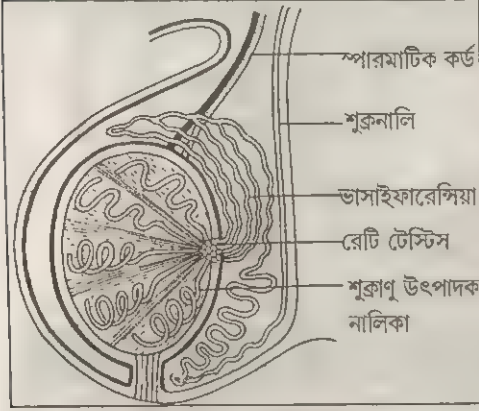 স্পারমাটিক কর্ড
শুক্রনালি
ভাসাইফারেন্সিয়া
রেটি টেস্টিস
শুক্রাণু উৎপাদক
নালিকা